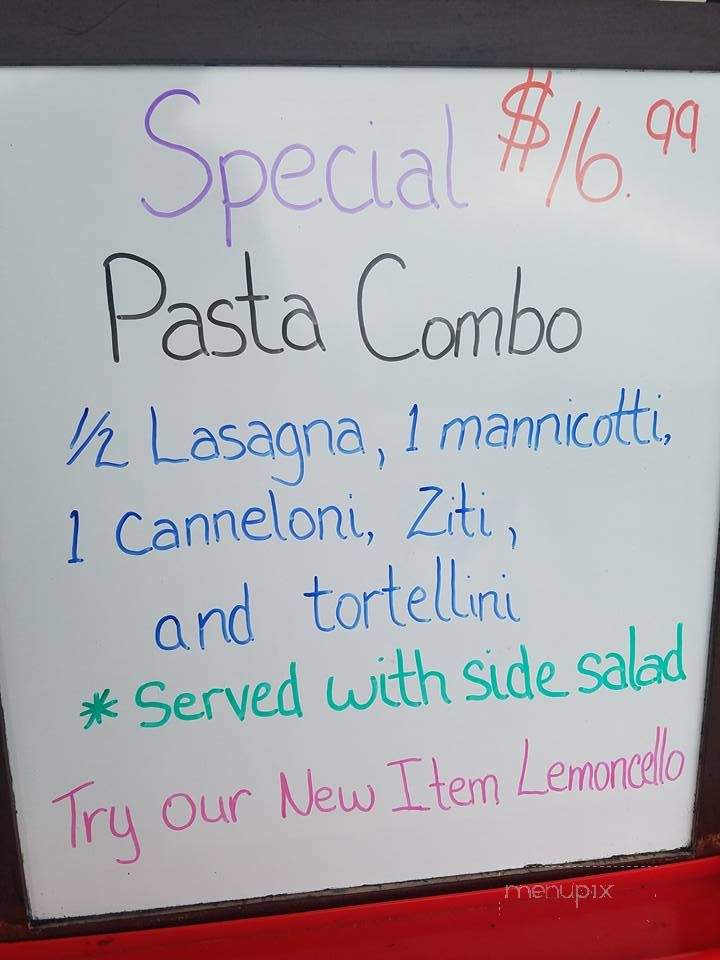 Special $16.99
Pasta Combo
1/2 Lasagna, 1 mannicotti,
1 Canneloni, Ziti,
and tortellini
* Served with side salad
Try our New Item Lemoncello
menupix